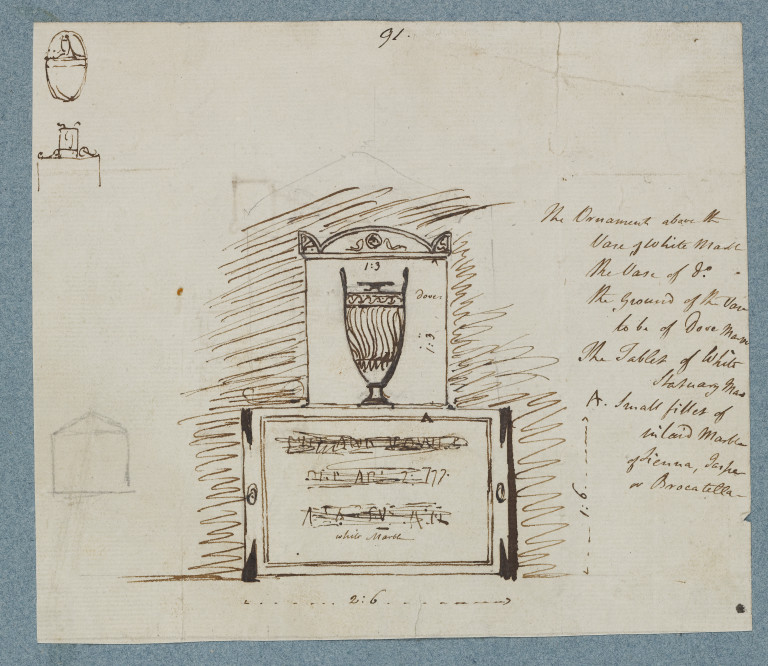 91.
The Ornament above the
Vase of White Marbl
the Vase of Do.
the Ground of the Vase
to be of Dove Marb
The Tablet of White
Statuary Mar
A. Small fillet of
inlaid Marble
of Sienna, Jaspe
or Brocatella
1:3
Dove
1:3
A
DIED APL 2: 777.
white Marbl
1:6
2:6